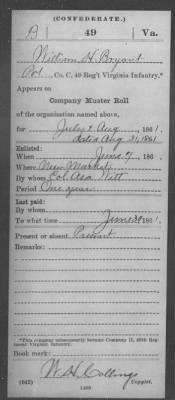 (CONFEDERATE.)
B 49 Va.
William H. Bryant
Pvt., Co. C, 49 Reg't Virginia Infantry.*
Appears on
Company Muster Roll
of the organization named above,
for July & Aug, 1861.
dated Aug 31, 1861
Enlisted:
When June 7, 186 .
Where New Market
By whom Col. Asa
Period One year
Last paid:
By whom
To what time June 30, 1861.
Present or absent Present
Remarks:
*This company subsequently became Company H, 49th Regiment Virginia Infantry.
Book mark:
W. H. Collings
(642) Copyist.